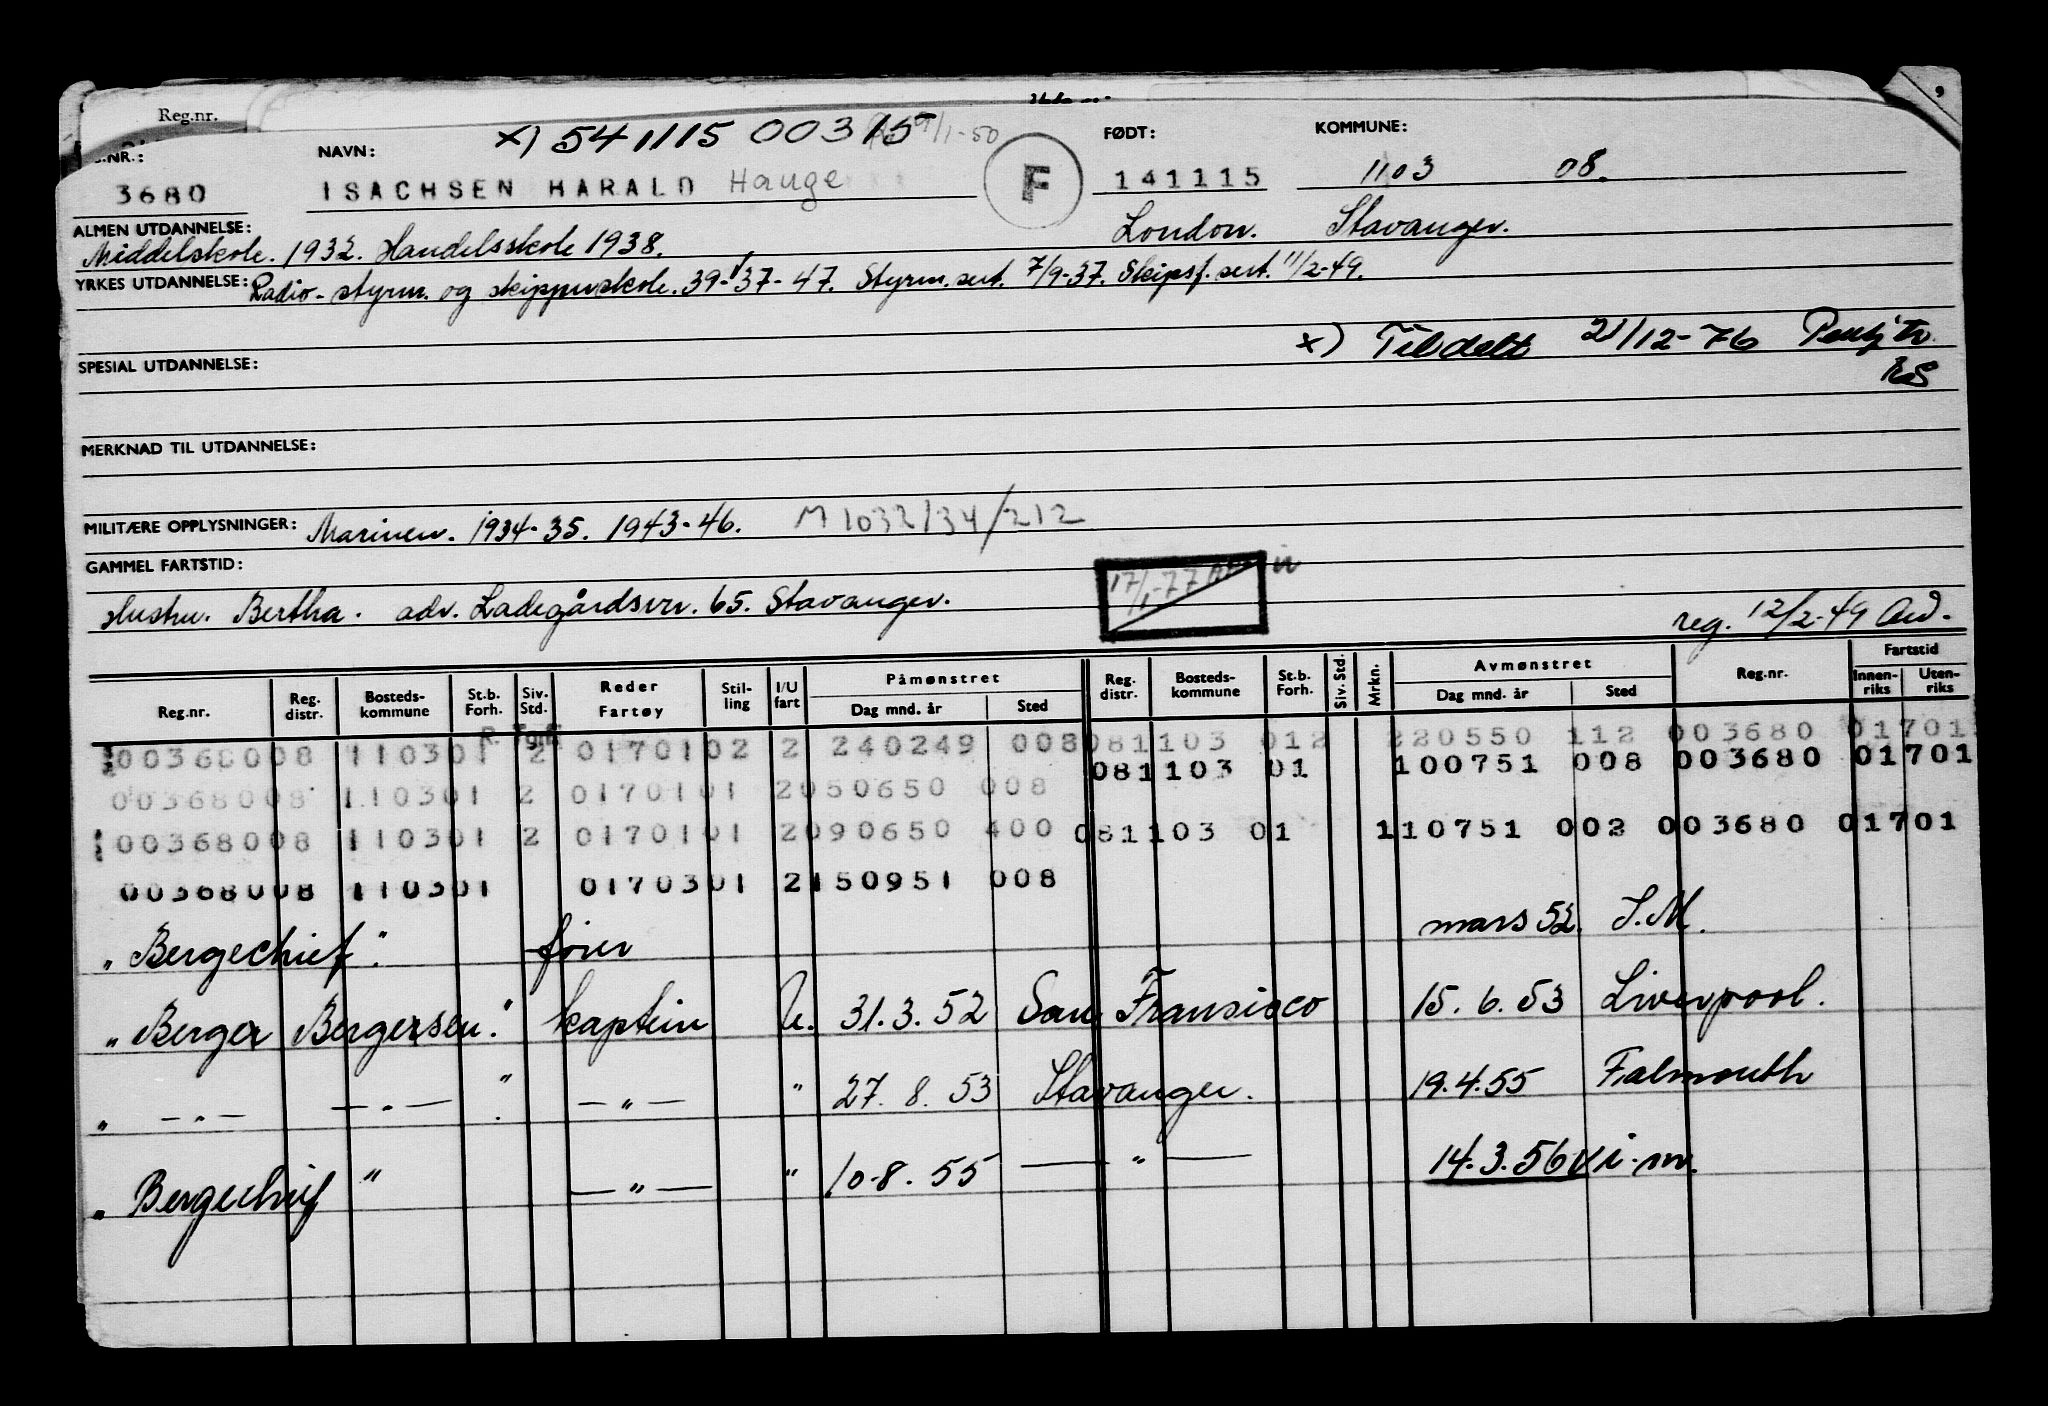 Reg.nr.
x) 541115 00315 9/1-50
NR.: NAVN: F FØDT: KOMMUNE:
3680 ISACHSEN HARALD Hauge 141115 1103 08.
ALMEN UTDANNELSE: Middelskole. 1932. Handelsskole 1938. London. Stavanger.
YRKES UTDANNELSE: Radio- styrm. og skipperskole. 39-37-47. Styrm. sert. 7/9-37. Skipsf. sert. 11/2-49.
x) Tildelt 21/12-76 Pensj.tr.
SPESIAL UTDANNELSE: RS
MERKNAD TIL UTDANNELSE:
MILITÆRE OPPLYSNINGER: Marinen. 1934-35. 1943-46. M 1032/34/212
GAMMEL FARTSTID: 17/1-77
Hustru. Bertha. adr. Ladegårdsvn. 65. Stavanger. reg. 12/2-49
Reg.nr. Reg. distr. Bosteds- kommune St.b. Forh. Siv. Std. Reder Fartøy Stil- ling I/U fart Påmønstret Dag mnd. år Sted Reg. distr. Bosteds- kommune St.b. Forh. Siv. Std. Mrkn. Avmønstret Dag mnd. år Sted Reg.nr. Fartstid Innen- riks Uten- riks
R. Tgnf
00368008 110301 2 0170102 2 240249 008 081103 012 220550 112 003680 01701
081103 01 100751 008 003680 01701
00368008 110301 2 0170101 2050650 008
00368008 110301 2 0170101 2090650 400 081103 01 110751 002 003680 01701
00368008 110301 0170301 2150951 008
"Bergechief". fører mars 52. S.M.
"Berger Bergersen". kaptein U. 31.3.52 San Fransisco 15.6.53 Liverpool.
" —"— —"— " —"— " 27.8.53 Stavanger. 19.4.55 Falmouth
"Bergechief" —"— " 10-8.55 —"— 14.3.56 i.m.